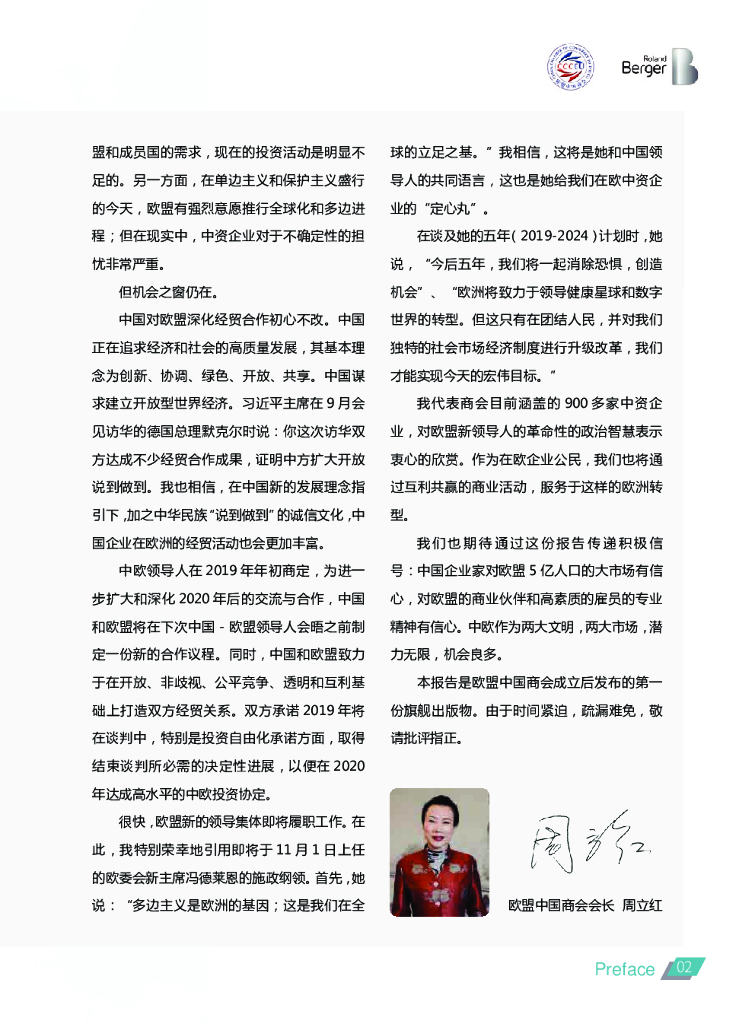 Roland
Berger
CCCEU
盟和成员国的需求，现在的投资活动是明显不
足的。另一方面，在单边主义和保护主义盛行
的今天，欧盟有强烈意愿推行全球化和多边进
程；但在现实中，中资企业对于不确定性的担
忧非常严重。
但机会之窗仍在。
中国对欧盟深化经贸合作初心不改。中国
正在追求经济和社会的高质量发展，其基本理
念为创新、协调、绿色、开放、共享。中国谋
求建立开放型世界经济。习近平主席在 9 月会
见访华的德国总理默克尔时说：你这次访华双
方达成不少经贸合作成果，证明中方扩大开放
说到做到。我也相信，在中国新的发展理念指
引下，加之中华民族“说到做到”的诚信文化，中
国企业在欧洲的经贸活动也会更加丰富。
中欧领导人在 2019 年年初商定，为进一
步扩大和深化 2020 年后的交流与合作，中国
和欧盟将在下次中国 - 欧盟领导人会晤之前制
定一份新的合作议程。同时，中国和欧盟致力
于在开放、非歧视、公平竞争、透明和互利基
础上打造双方经贸关系。双方承诺 2019 年将
在谈判中，特别是投资自由化承诺方面，取得
结束谈判所必需的决定性进展，以便在 2020
年达成高水平的中欧投资协定。
很快，欧盟新的领导集体即将履职工作。在
此，我特别荣幸地引用即将于 11 月 1 日上任
的欧委会新主席冯德莱恩的施政纲领。首先，她
说：“多边主义是欧洲的基因；这是我们在全
球的立足之基。”我相信，这将是她和中国领
导人的共同语言，这也是她给我们在欧中资企
业的“定心丸”。
在谈及她的五年（2019-2024）计划时，她
说，“今后五年，我们将一起消除恐惧，创造
机会”、“欧洲将致力于领导健康星球和数字
世界的转型。但这只有在团结人民，并对我们
独特的社会市场经济制度进行升级改革，我们
才能实现今天的宏伟目标。”
我代表商会目前涵盖的 900 多家中资企
业，对欧盟新领导人的革命性的政治智慧表示
衷心的欣赏。作为在欧企业公民，我们也将通
过互利共赢的商业活动，服务于这样的欧洲转
型。
我们也期待通过这份报告传递积极信
号：中国企业家对欧盟 5 亿人口的大市场有信
心，对欧盟的商业伙伴和高素质的雇员的专业
精神有信心。中欧作为两大文明，两大市场，潜
力无限，机会良多。
本报告是欧盟中国商会成立后发布的第一
份旗舰出版物。由于时间紧迫，疏漏难免，敬
请批评指正。
周立红
欧盟中国商会会长 周立红
Preface 02